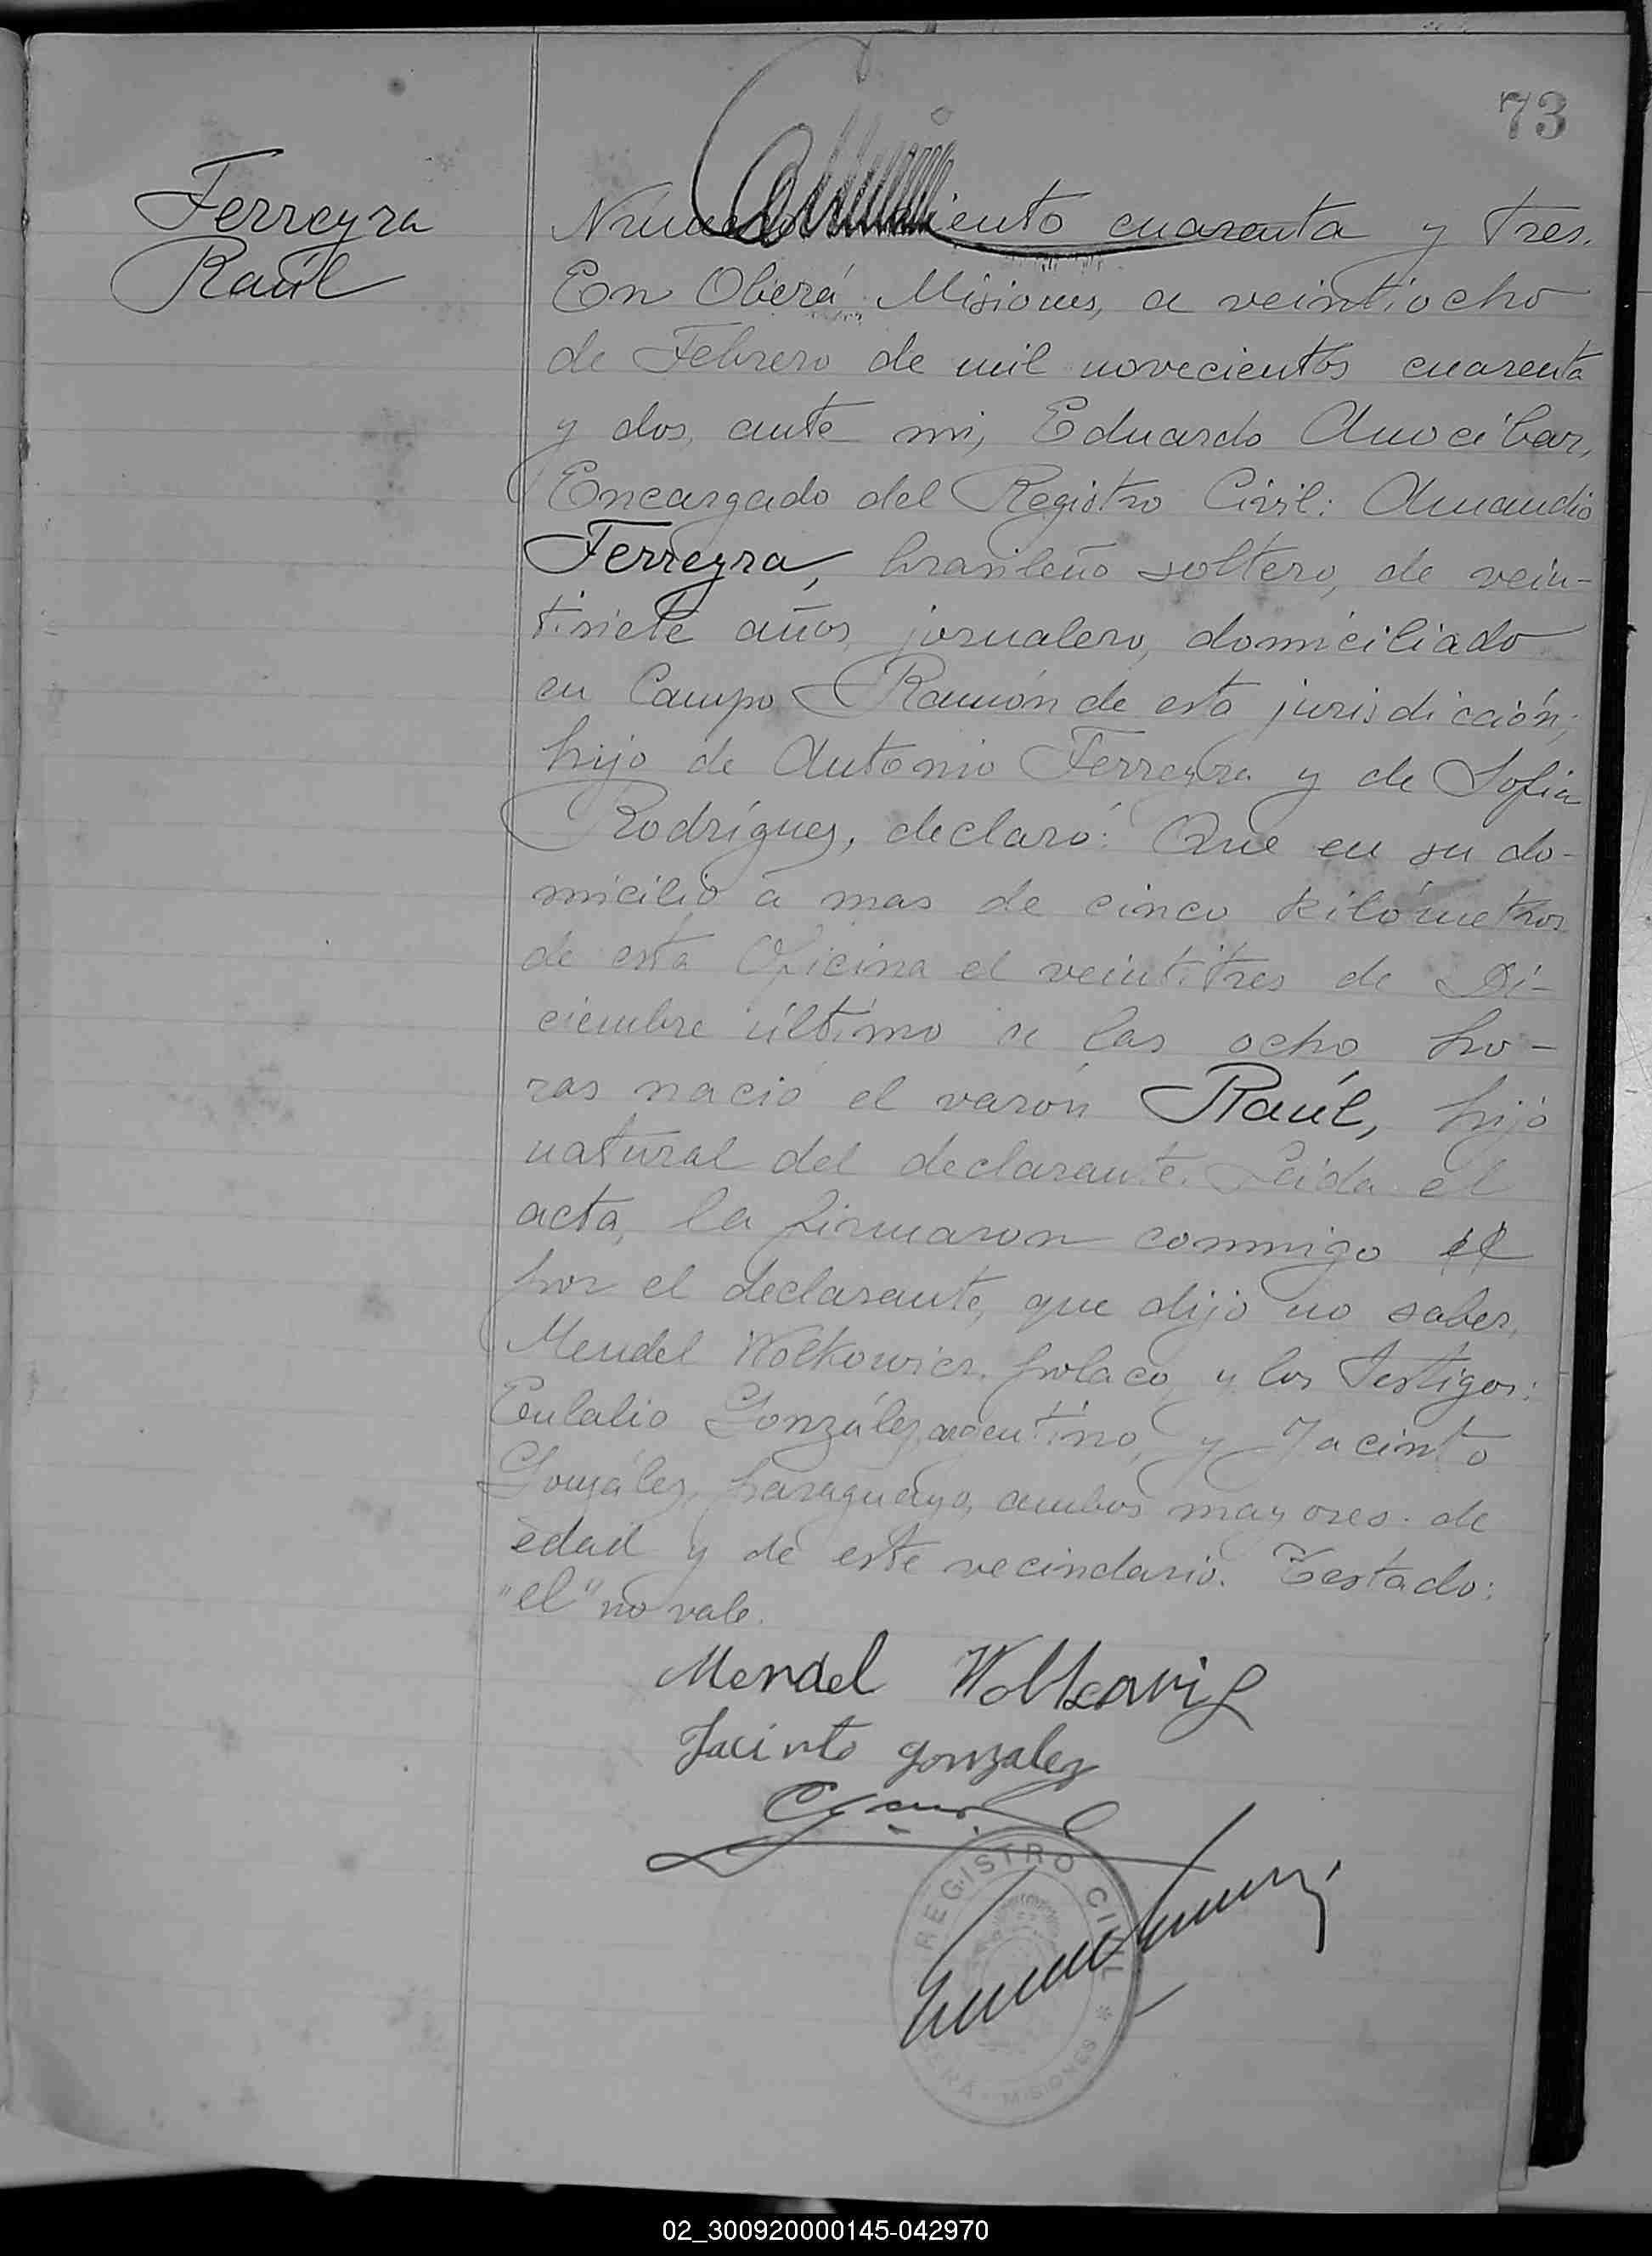 73
Ferreyra
Raúl
Número ciento cuarenta y tres.
En Oberá Misiones, a veintiocho
de Febrero de mil novecientos cuarenta
y dos, ante mi, Eduardo Anocibar,
Encargado del Registro Civil: Amandio
Ferreyra, brasileño soltero, de vein-
tisiete años, jornalero, domiciliado
en Campo Ramón de esta jurisdicción;
hijo de Antonio Ferreyra y de Sofia
Rodrígues, declaró: Que en su do-
micilio a mas de cinco kilómetros
de esta Oficina el veintitres de Di-
ciembre último a las ocho ho-
ras nació el varón Raúl, hijo
natural del declarante. Leida el
acta, la firmaron conmigo el
por el declarante, que dijo no saber,
Mendel Wolkowicz, polaco, y los testigos:
Eulalio González, argentino, y Jacinto
González, paraguayo, ambos mayores de
edad y de este vecindario. Testado:
"el" no vale.
Mendel Wolkowicz
Jacinto gonzalez
REGISTRO CIVIL
OBERÁ - MISIONES
02_300920000145-042970